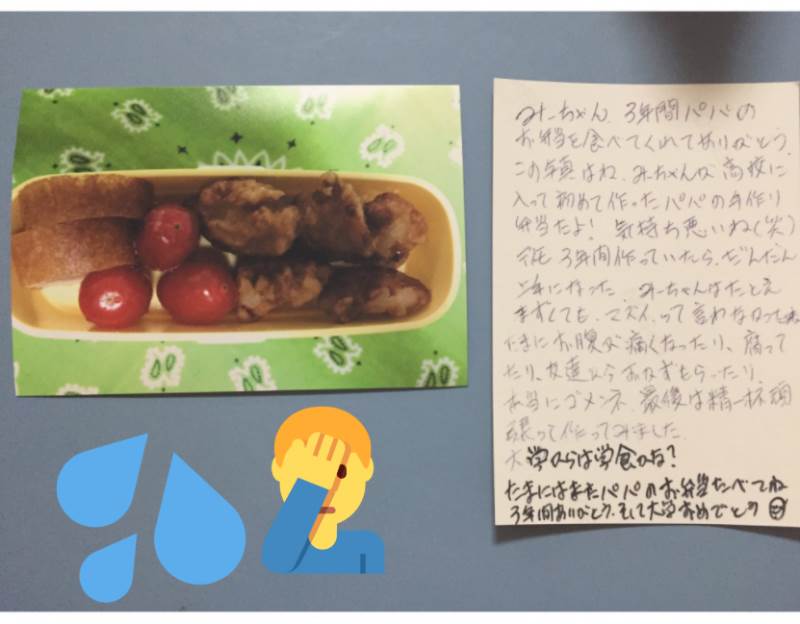 みーちゃん、3年間パパの
お弁当を食べてくれてありがとう。
この写真はね、みーちゃんが高校に
入って初めて作ったパパの手作り
弁当だよ！ 気持ち悪いね(笑)
3年間作っていたら、だんだん
上手になった。みーちゃんはたとえ
まずくても、マズイって言わなかったね
たまにお腹が痛くなったり、腐って
たり、友達からおかずもらったり
本当にゴメンネ。最後は精一杯頑
張って作ってみました。
大学からは学食かな？
たまにはまたパパのお弁当たべてね
3年間ありがとう。そして大学おめでとう